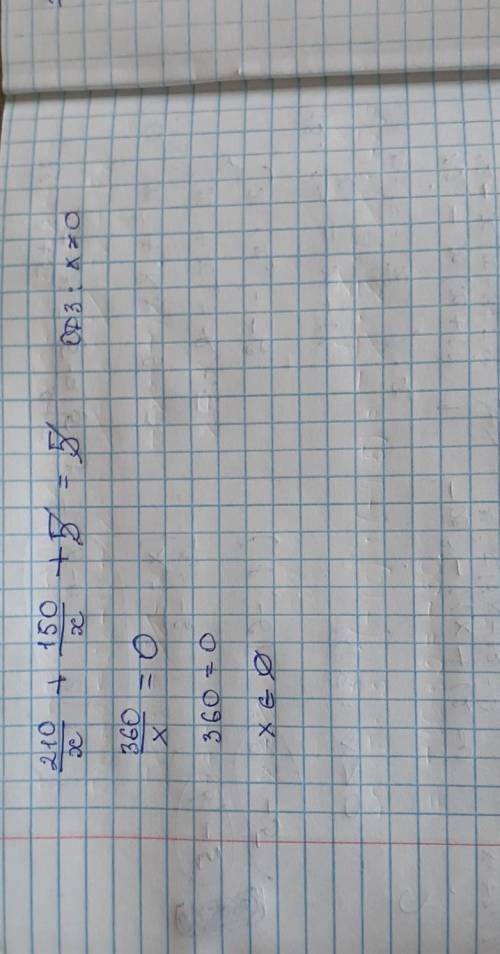 210/x + 150/x + 5 = 5 ОДЗ: x≠0
360/x = 0
360 = 0
x ∈ ∅